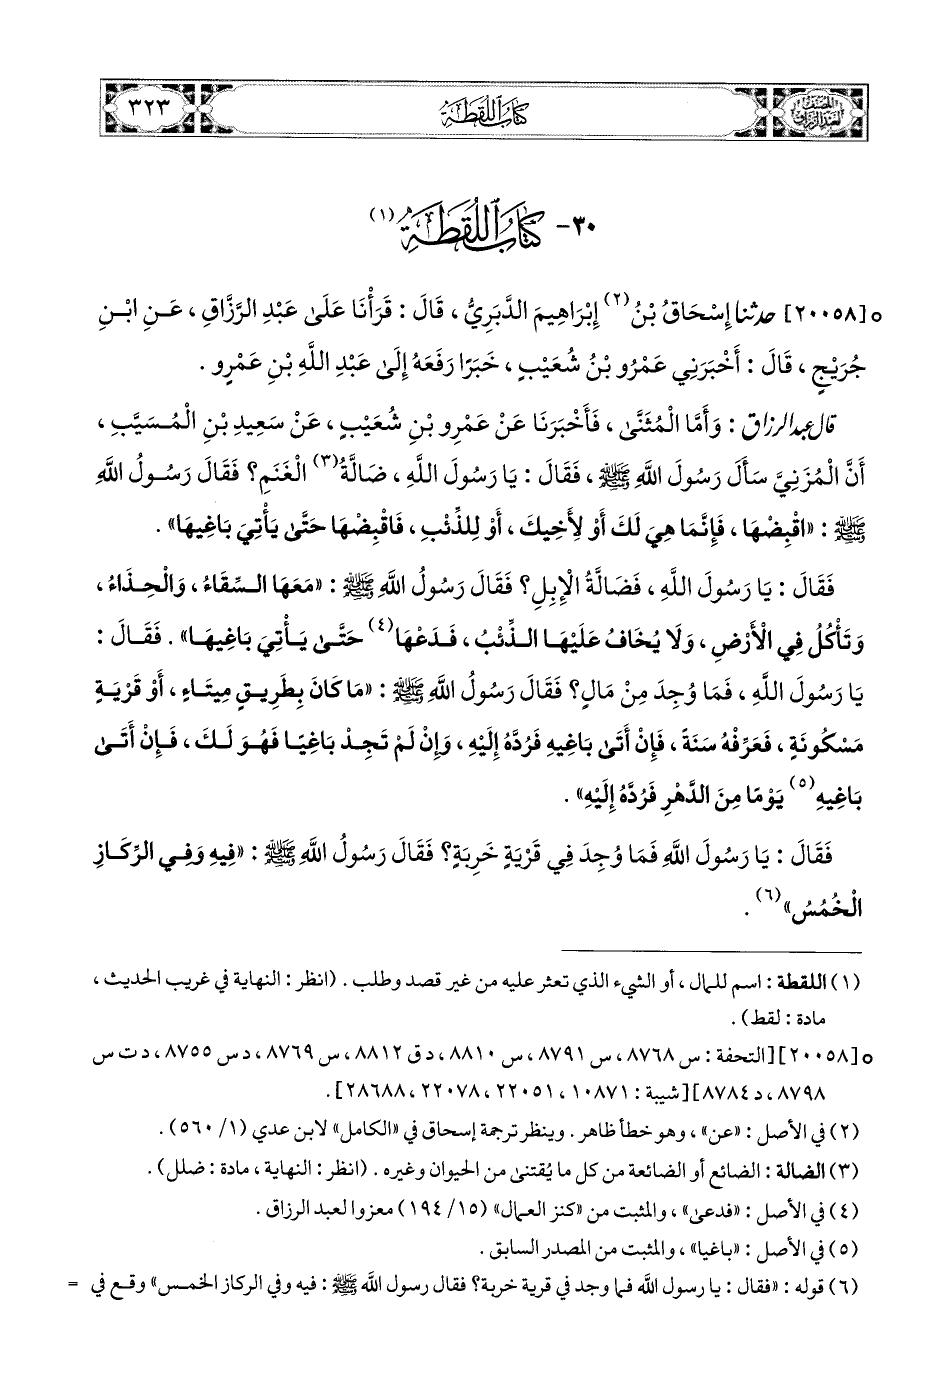 المصنف لعبد الرزاق
كتاب اللقطة
٣٢٣
٣٠- كتاب اللقطة (١)
٥ [٢٠٠٥٨] حدثنا إِسْحَاقُ بْنُ (٢) إِبْرَاهِيمَ الدَّبَرِيُّ ، قَالَ : قَرَأْنَا عَلَى عَبْدِ الرَّزَّاقِ ، عَنِ ابْنِ
جُرَيْجٍ ، قَالَ : أَخْبَرَنِي عَمْرُو بْنُ شُعَيْبٍ ، خَبَرًا رَفَعَهُ إِلَى عَبْدِ اللَّهِ بْنِ عَمْرٍو .
قال عبد الرزاق : وَأَمَّا الْمُثَنَّى ، فَأَخْبَرَنَا عَنْ عَمْرِو بْنِ شُعَيْبٍ ، عَنْ سَعِيدِ بْنِ الْمُسَيَّبِ ،
أَنَّ الْمُزَنِيَّ سَأَلَ رَسُولَ اللَّهِ ﷺ ، فَقَالَ : يَا رَسُولَ اللَّهِ ، ضَالَّةُ (٣) الْغَنَمِ؟ فَقَالَ رَسُولُ اللَّهِ
ﷺ : «اقْبِضْهَا ، فَإِنَّمَا هِيَ لَكَ أَوْ لِأَخِيكَ ، أَوْ لِلذِّئْبِ ، فَاقْبِضْهَا حَتَّى يَأْتِيَ بَاغِيهَا» .
فَقَالَ : يَا رَسُولَ اللَّهِ ، فَضَالَّةُ الْإِبِلِ؟ فَقَالَ رَسُولُ اللَّهِ ﷺ : «مَعَهَا السِّقَاءُ ، وَالْحِذَاءُ ،
وَتَأْكُلُ فِي الْأَرْضِ ، وَلَا يُخَافُ عَلَيْهَا الذِّئْبُ ، فَدَعْهَا (٤) حَتَّى يَأْتِيَ بَاغِيهَا» . فَقَالَ :
يَا رَسُولَ اللَّهِ ، فَمَا وُجِدَ مِنْ مَالٍ؟ فَقَالَ رَسُولُ اللَّهِ ﷺ : «مَا كَانَ بِطَرِيقٍ مِيتَاءٍ ، أَوْ قَرْيَةٍ
مَسْكُونَةٍ ، فَعَرِّفْهُ سَنَةً ، فَإِنْ أَتَى بَاغِيهِ فَرُدَّهُ إِلَيْهِ ، وَإِنْ لَمْ تَجِدْ بَاغِيًا فَهُوَ لَكَ ، فَإِنْ أَتَى
بَاغِيهِ (٥) يَوْمًا مِنَ الدَّهْرِ فَرُدَّهُ إِلَيْهِ» .
فَقَالَ : يَا رَسُولَ اللَّهِ فَمَا وُجِدَ فِي قَرْيَةٍ خَرِبَةٍ؟ فَقَالَ رَسُولُ اللَّهِ ﷺ : «فِيهِ وَفِي الرِّكَازِ
الْخُمُسُ» (٦) .
(١) اللقطة : اسم للمال ، أو الشيء الذي تعثر عليه من غير قصد وطلب . (انظر : النهاية في غريب الحديث ،
مادة : لقط) .
٥ [٢٠٠٥٨] [التحفة : س ٨٧٦٨ ، س ٨٧٩١ ، س ٨٨١٠ ، د ق ٨٨١٢ ، س ٨٧٦٩ ، د س ٨٧٥٥ ، د ت س
٨٧٩٨ ، د ٨٧٨٤] [شيبة : ١٠٨٧١ ، ٢٢٠٥١ ، ٢٢٠٧٨ ، ٢٨٦٨٨] .
(٢) في الأصل : «عن» ، وهو خطأ ظاهر . وينظر ترجمة إسحاق في «الكامل» لابن عدي (١/ ٥٦٠) .
(٣) الضالة : الضائع أو الضائعة من كل ما يُقتنى من الحيوان وغيره . (انظر : النهاية ، مادة : ضلل) .
(٤) في الأصل : «فدعى» ، والمثبت من «كنز العمال» (١٥/ ١٩٤) معزوا لعبد الرزاق .
(٥) في الأصل : «باغيا» ، والمثبت من المصدر السابق .
(٦) قوله : «فقال : يا رسول الله فما وجد في قرية خربة؟ فقال رسول الله ﷺ : فيه وفي الركاز الخمس» وقع في =